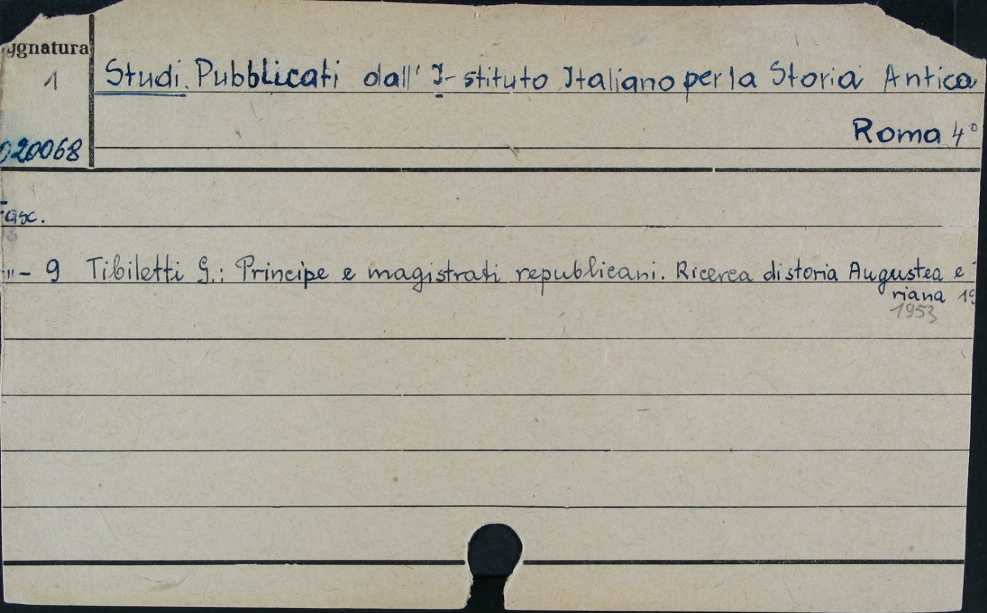 ygnatura
1 Studi. Pubblicati dall' I-stituto Italiano per la Storia Antica
Roma 4°
020068
Fasc.
"- 9 Tibiletti G.: Principe e magistrati republicani. Ricerca di storia Augustea e
riana 19
1953